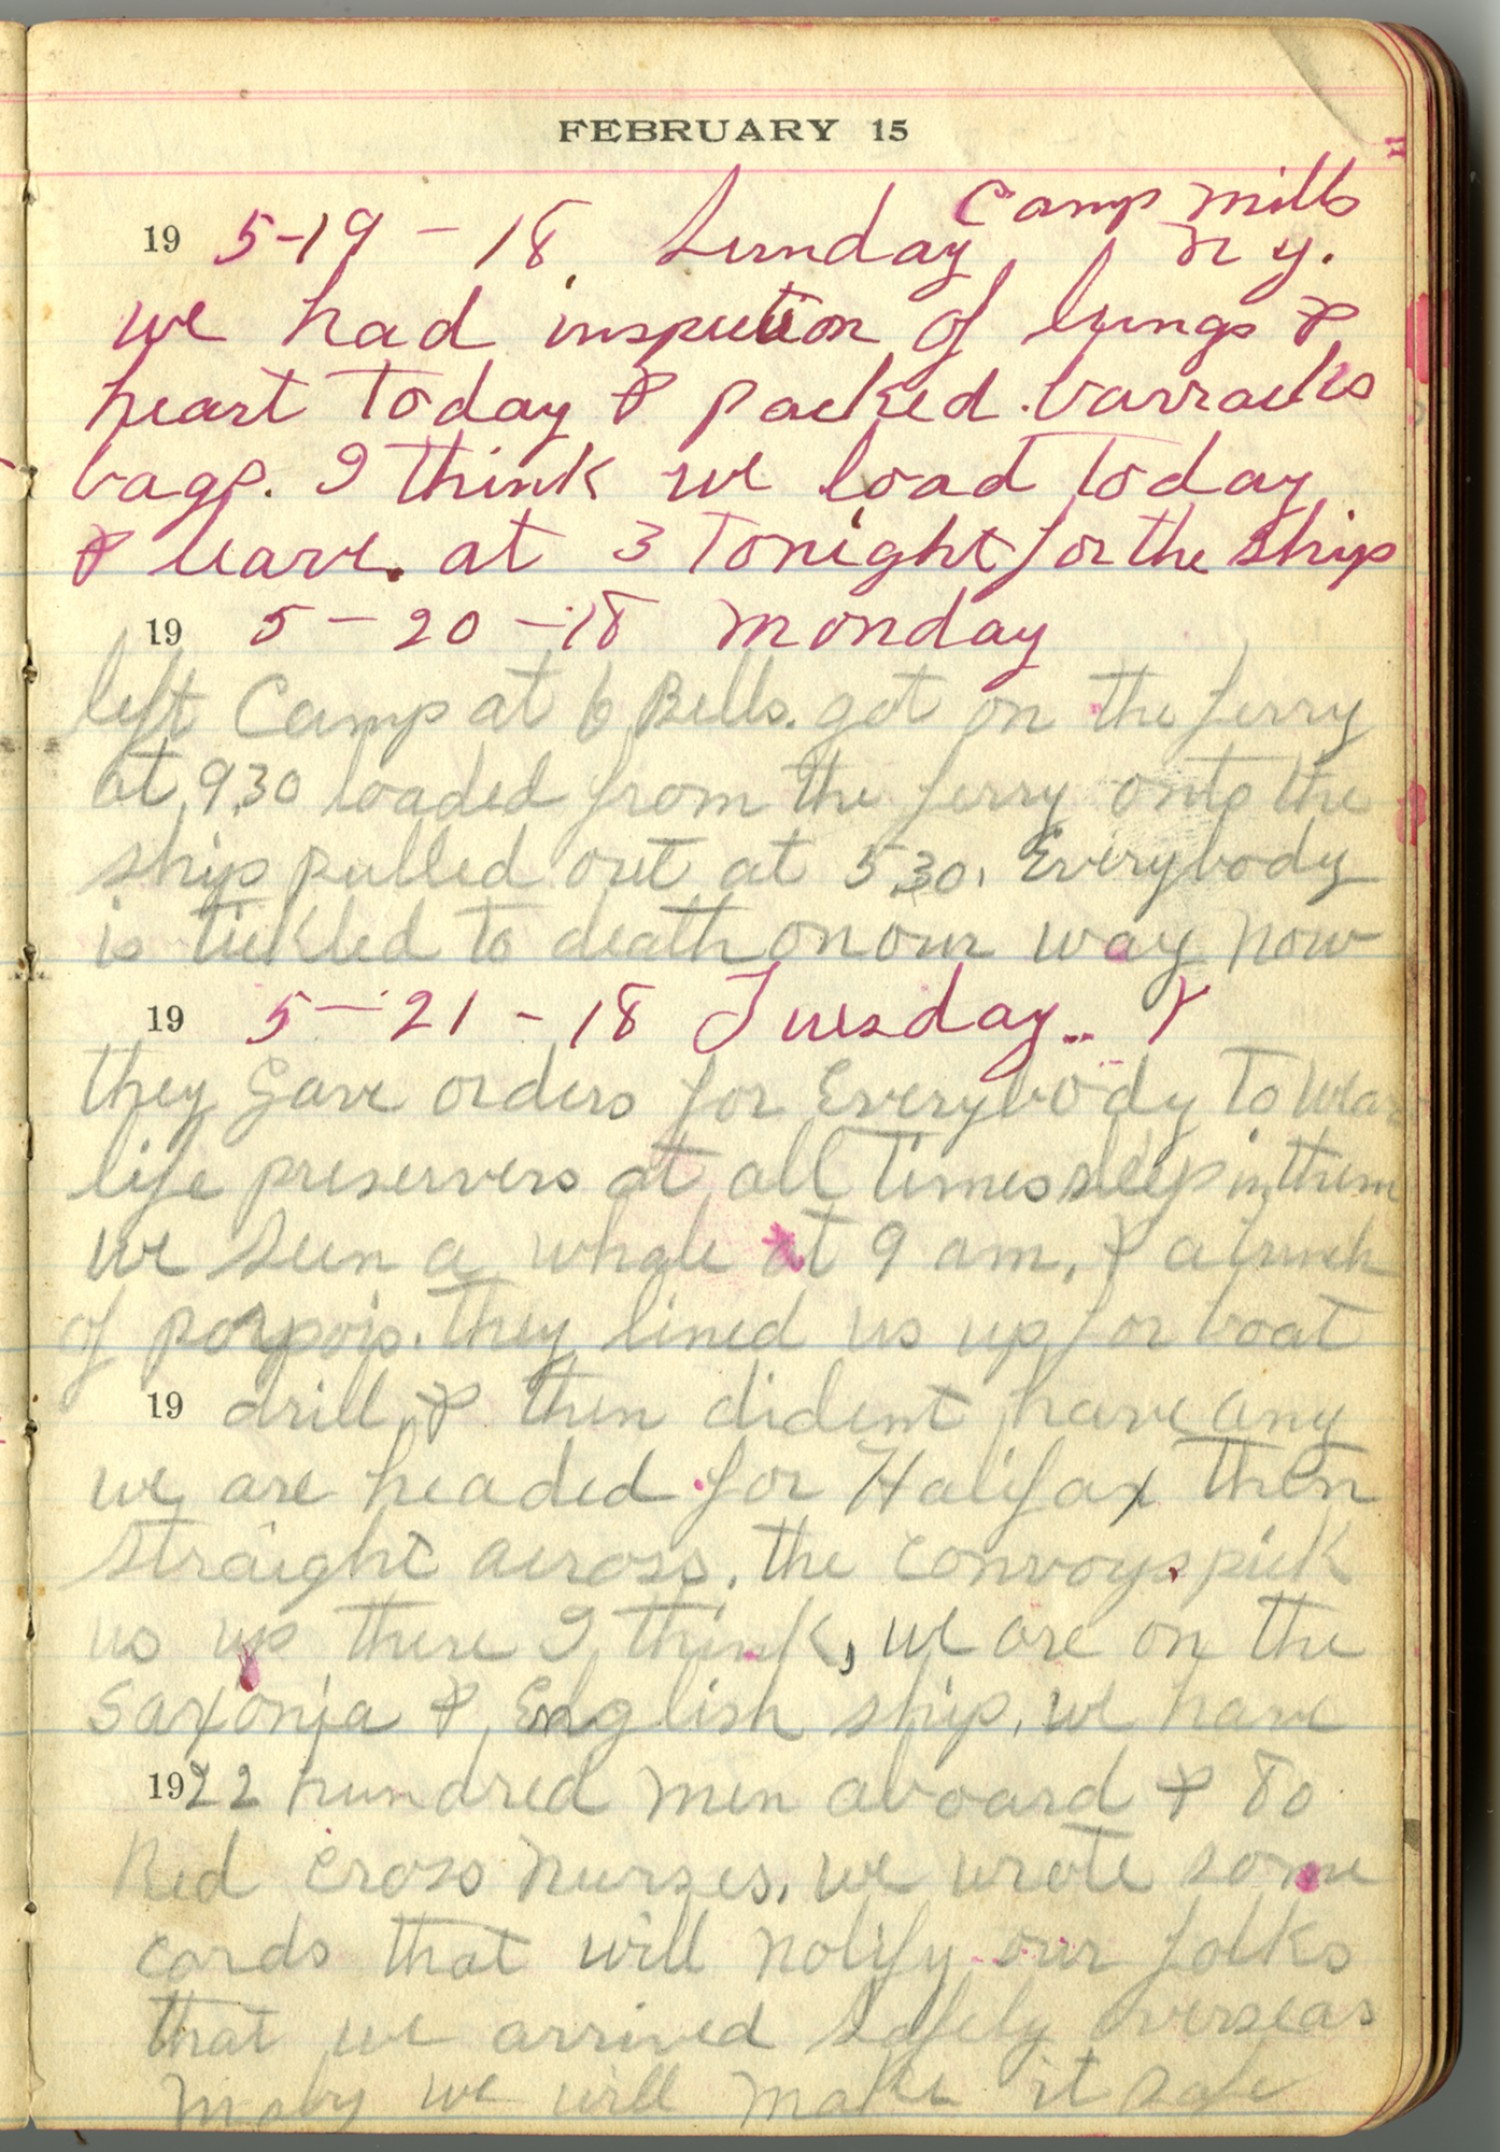 FEBRUARY 15
Camp Mills
19 5-19-18. Sunday N Y.
we had inspection of lungs &
heart today & packed barracks
bags. I think we load today
& leave at 3 Tonight for the ship
19 5-20-18 Monday
left Camp at 6 Bells. got on the ferry
at 9,30 loaded from the ferry onto the
ship pulled out at 5,30. Everybody
is tickled to death on our way now
19 5-21-18 Tuesday..
they gave orders for Everybody to wear
life preservers at all times sleep in them
we seen a whale at 9 am, & a bunch
of porpois. They lined us up for boat
19 drill, & then dident have any
we are headed for Halifax then
straight across. the convoys pick
us up there I think, we are on the
Saxonia & English ship. we have
19 22 hundred men aboard & 80
Red cross Nurses. we wrote some
cards that will notify our folks
that we arrived safely overseas
maby we will make it safe